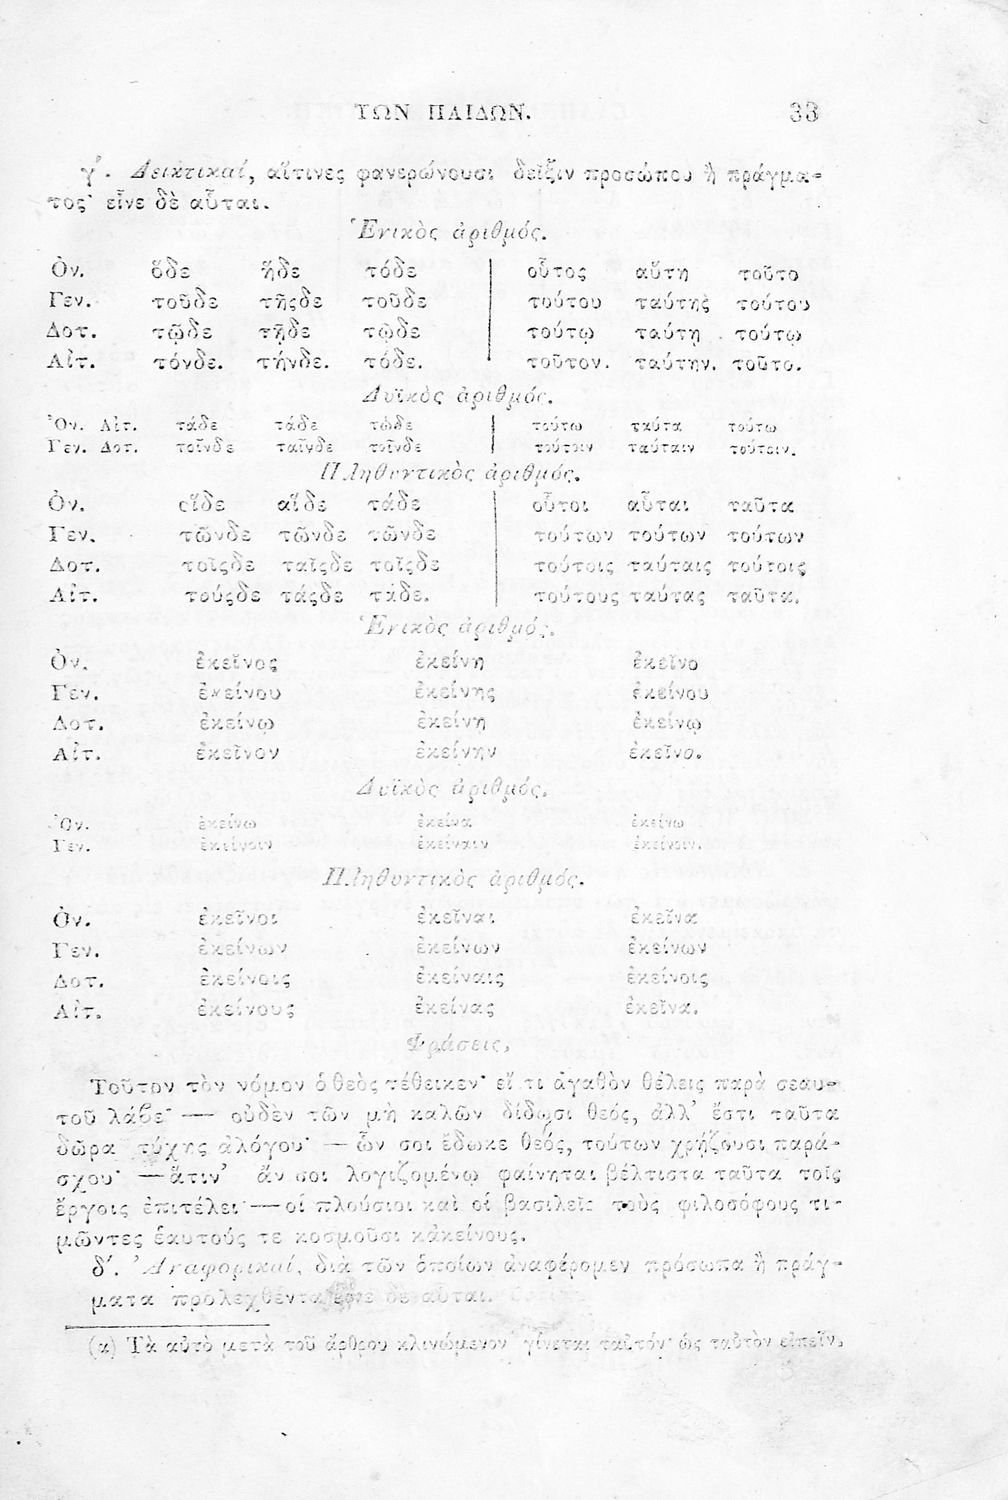 ΤΩΝ ΠΑΙΔΩΝ. 33
γ΄. Δεικτικαί, αἵτινες φανερώνουσι δεῖξιν προσώπου ἢ πράγμα-
τος· εἶνε δὲ αὗται.
Ἑνικὸς ἀριθμός.
Ὀν. ὅδε ἥδε τόδε | οὗτος αὕτη τοῦτο
Γεν. τοῦδε τῆςδε τοῦδε | τούτου ταύτης τούτου
Δοτ. τῷδε τῇδε τῷδε | τούτῳ ταύτῃ τούτῳ
Αἰτ. τόνδε. τήνδε. τόδε. | τοῦτον. ταύτην. τοῦτο.
Δυϊκὸς ἀριθμός.
Ὀν. Αἰτ. τάδε τάδε τώδε | τούτω ταύτα τούτω
Γεν. Δοτ. τοῖνδε ταῖνδε τοῖνδε | τούτοιν ταύταιν τούτοιν.
Πληθυντικὸς ἀριθμός.
Ὀν. οἵδε αἵδε τάδε | οὗτοι αὗται ταῦτα
Γεν. τῶνδε τῶνδε τῶνδε | τούτων τούτων τούτων
Δοτ. τοῖςδε ταῖςδε τοῖςδε | τούτοις ταύταις τούτοις
Αἰτ. τούςδε τάςδε τάδε. | τούτους ταύτας ταῦτα.
Ἑνικὸς ἀριθμός.
Ὀν. ἐκεῖνος ἐκείνη ἐκεῖνο
Γεν. ἐκείνου ἐκείνης ἐκείνου
Δοτ. ἐκείνῳ ἐκείνῃ ἐκείνῳ
Αἰτ. ἐκεῖνον ἐκείνην ἐκεῖνο.
Δυϊκὸς ἀριθμός.
Ὀν. ἐκείνω ἐκείνα ἐκείνω
Γεν. ἐκείνοιν ἐκείναιν ἐκείνοιν.
Πληθυντικὸς ἀριθμός.
Ὀν. ἐκεῖνοι ἐκεῖναι ἐκεῖνα
Γεν. ἐκείνων ἐκείνων ἐκείνων
Δοτ. ἐκείνοις ἐκείναις ἐκείνοις
Αἰτ. ἐκείνους ἐκείνας ἐκεῖνα.
Φράσεις.
Τοῦτον τὸν νόμον ὁ θεὸς τέθεικεν· εἴ τι ἀγαθὸν θέλεις παρὰ σεαυ-
τοῦ λάβε· — οὐδὲν τῶν μὴ καλῶν δίδωσι θεός, ἀλλ' ἔστι ταῦτα
δῶρα τύχης ἀλόγου· — ὧν σοι ἔδωκε θεός, τούτων χρῄζουσι παρά-
σχου· — ἅτιν' ἄν σοι λογιζομένῳ φαίνηται βέλτιστα ταῦτα τοῖς
ἔργοις ἐπιτέλει· — οἱ πλούσιοι καὶ οἱ βασιλεῖς τοὺς φιλοσόφους τι-
μῶντες ἑαυτούς τε κοσμοῦσι κἀκείνους.
δ΄. Ἀναφορικαί, διὰ τῶν ὁποίων ἀναφέρομεν πρόσωπα ἢ πράγ-
ματα προλεχθέντα εἶνε δὲ αὗται.
(α) Τὰ αὐτὸ μετὰ τοῦ ἄρθρου κλινώμενον γίνεται ταὐτόν· ὡς ταὐτὸν εἰπεῖν.